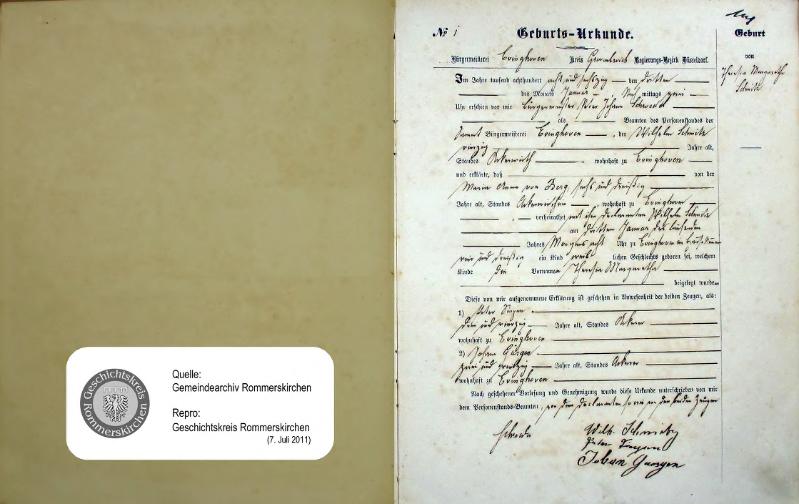 Geschichtskreis
Rommerskirchen
Quelle:
Gemeindearchiv Rommerskirchen
Repro:
Geschichtskreis Rommerskirchen
(7. Juli 2011)
№ 1 Geburts-Urkunde.
Bürgermeisterei Evinghoven Kreis Regierungs-Bezirk Düsseldorf.
Im Jahre tausend achthundert acht und sechszig den dritten
des Monats Januar mittags
Uhr erschien vor mir Bürgermeister Johann
als Beamten des Personenstandes der
Bürgermeisterei Evinghoven, der Wilhelm Schmitz
vierzig Jahre alt,
Standes Ackerwirth, wohnhaft zu Evinghoven
und erklärte, daß von der
Maria Anna von Berg sechs und dreißig
Jahre alt, Standes, wohnhaft zu Evinghoven
verheirathet mit dem Declaranten Wilhelm Schmitz
am dritten Januar des laufenden
Jahres Morgens acht Uhr zu Evinghoven
vier und dreißig ein Kind weiblichen Geschlechts geboren sei, welchem
Kinde die Vornamen Theresia Margaretha
beigelegt wurden
Diese von mir aufgenommene Erklärung ist geschehen in Anwesenheit der beiden Zeugen, als:
1) Peter
und vierzig Jahre alt, Standes Ackerer
wohnhaft zu Evinghoven
2) Johann
und Jahre alt, Standes Ackerer
wohnhaft zu Evinghoven
Nach geschehener Vorlesung und Genehmigung wurde diese Urkunde unterschrieben von mir
dem Personenstands-Beamten, von dem Declaranten sowie von den beiden Zeugen
Wilh. Schmitz
Peter
Johann
Geburt
von
Theresia Margaretha
Schmitz